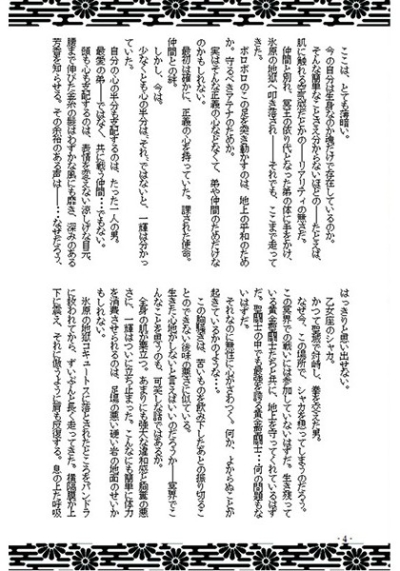 ここは、とても薄暗い。
今の自分は生身なのか魂だけで存在しているのか。
そんな簡単なことさえ分からないほどの―たとえば、
肌に触れる空気感だとかの――リアリティの無さだ。
仲間と別れ、冥王の依り代となった弟の体に手をかけ、
氷原の地獄へ叩き落され――それでも、ここまで走って
きた。
ボロボロのこの足を突き動かすのは、地上の平和のため
か。守るべきアテナのためか。
実はそんな正義の心などなくて、弟や仲間のためだけな
のかもしれない。
最初は確かに、正義の心を持っていた。課された使命。
仲間との絆。
しかし、今は。
少なくとも心の半分は、それ、ではないと、一輝は分かっ
ていた。
自分の心の半分も支配するのは、たった一人の男。
最愛の弟――ではなく、共に戦う仲間…でもない。
頭も心も支配するのは、表情を変えない涼しげな目元。
腰まで伸びた金糸の髪はわずかな風にも靡き、深みのある
芳香を知らせる。その余裕のある声は――なぜだろう、
はっきりと思い出せない。
乙女座のシャカ。
かつて聖域で対峙し、拳を交えた男。
なぜ今、この場所で、シャカを想ってしまうのだろう。
この冥界での戦いには参加していないはずだ。生き残って
いる黄金聖闘士たちと共に、地上を守ってくれているはず
だ。聖闘士の中でも最強を誇る黄金聖闘士…何の問題もな
いはずだ。
それなのに無性に心がざわつく。何か、よからぬことが
起きているかのような…。
この胸騒ぎは、苦いものを飲み下したあとの振り切るこ
とのできない後味の悪さに似ている。
生きた心地がしないと言えばいいのだろうか――冥界でこ
んなことを思うのも、可笑しな話ではあるが。
全身の肌が粟立つ。あまりにも強大な違和感と胸奥の悪
さに、一輝はついに立ち止まった。こんなにも簡単に体力
を消費させられるのは、足場の悪い硬い岩の地面のせいか
もしれない。
氷原の地獄コキュートスに落とされたところをパンドラ
に救われてから、ずいぶんと長く走ってきた。横隔膜が上
下に震え、それに倣うように肩も反復する。息の上た呼吸
- 4 -